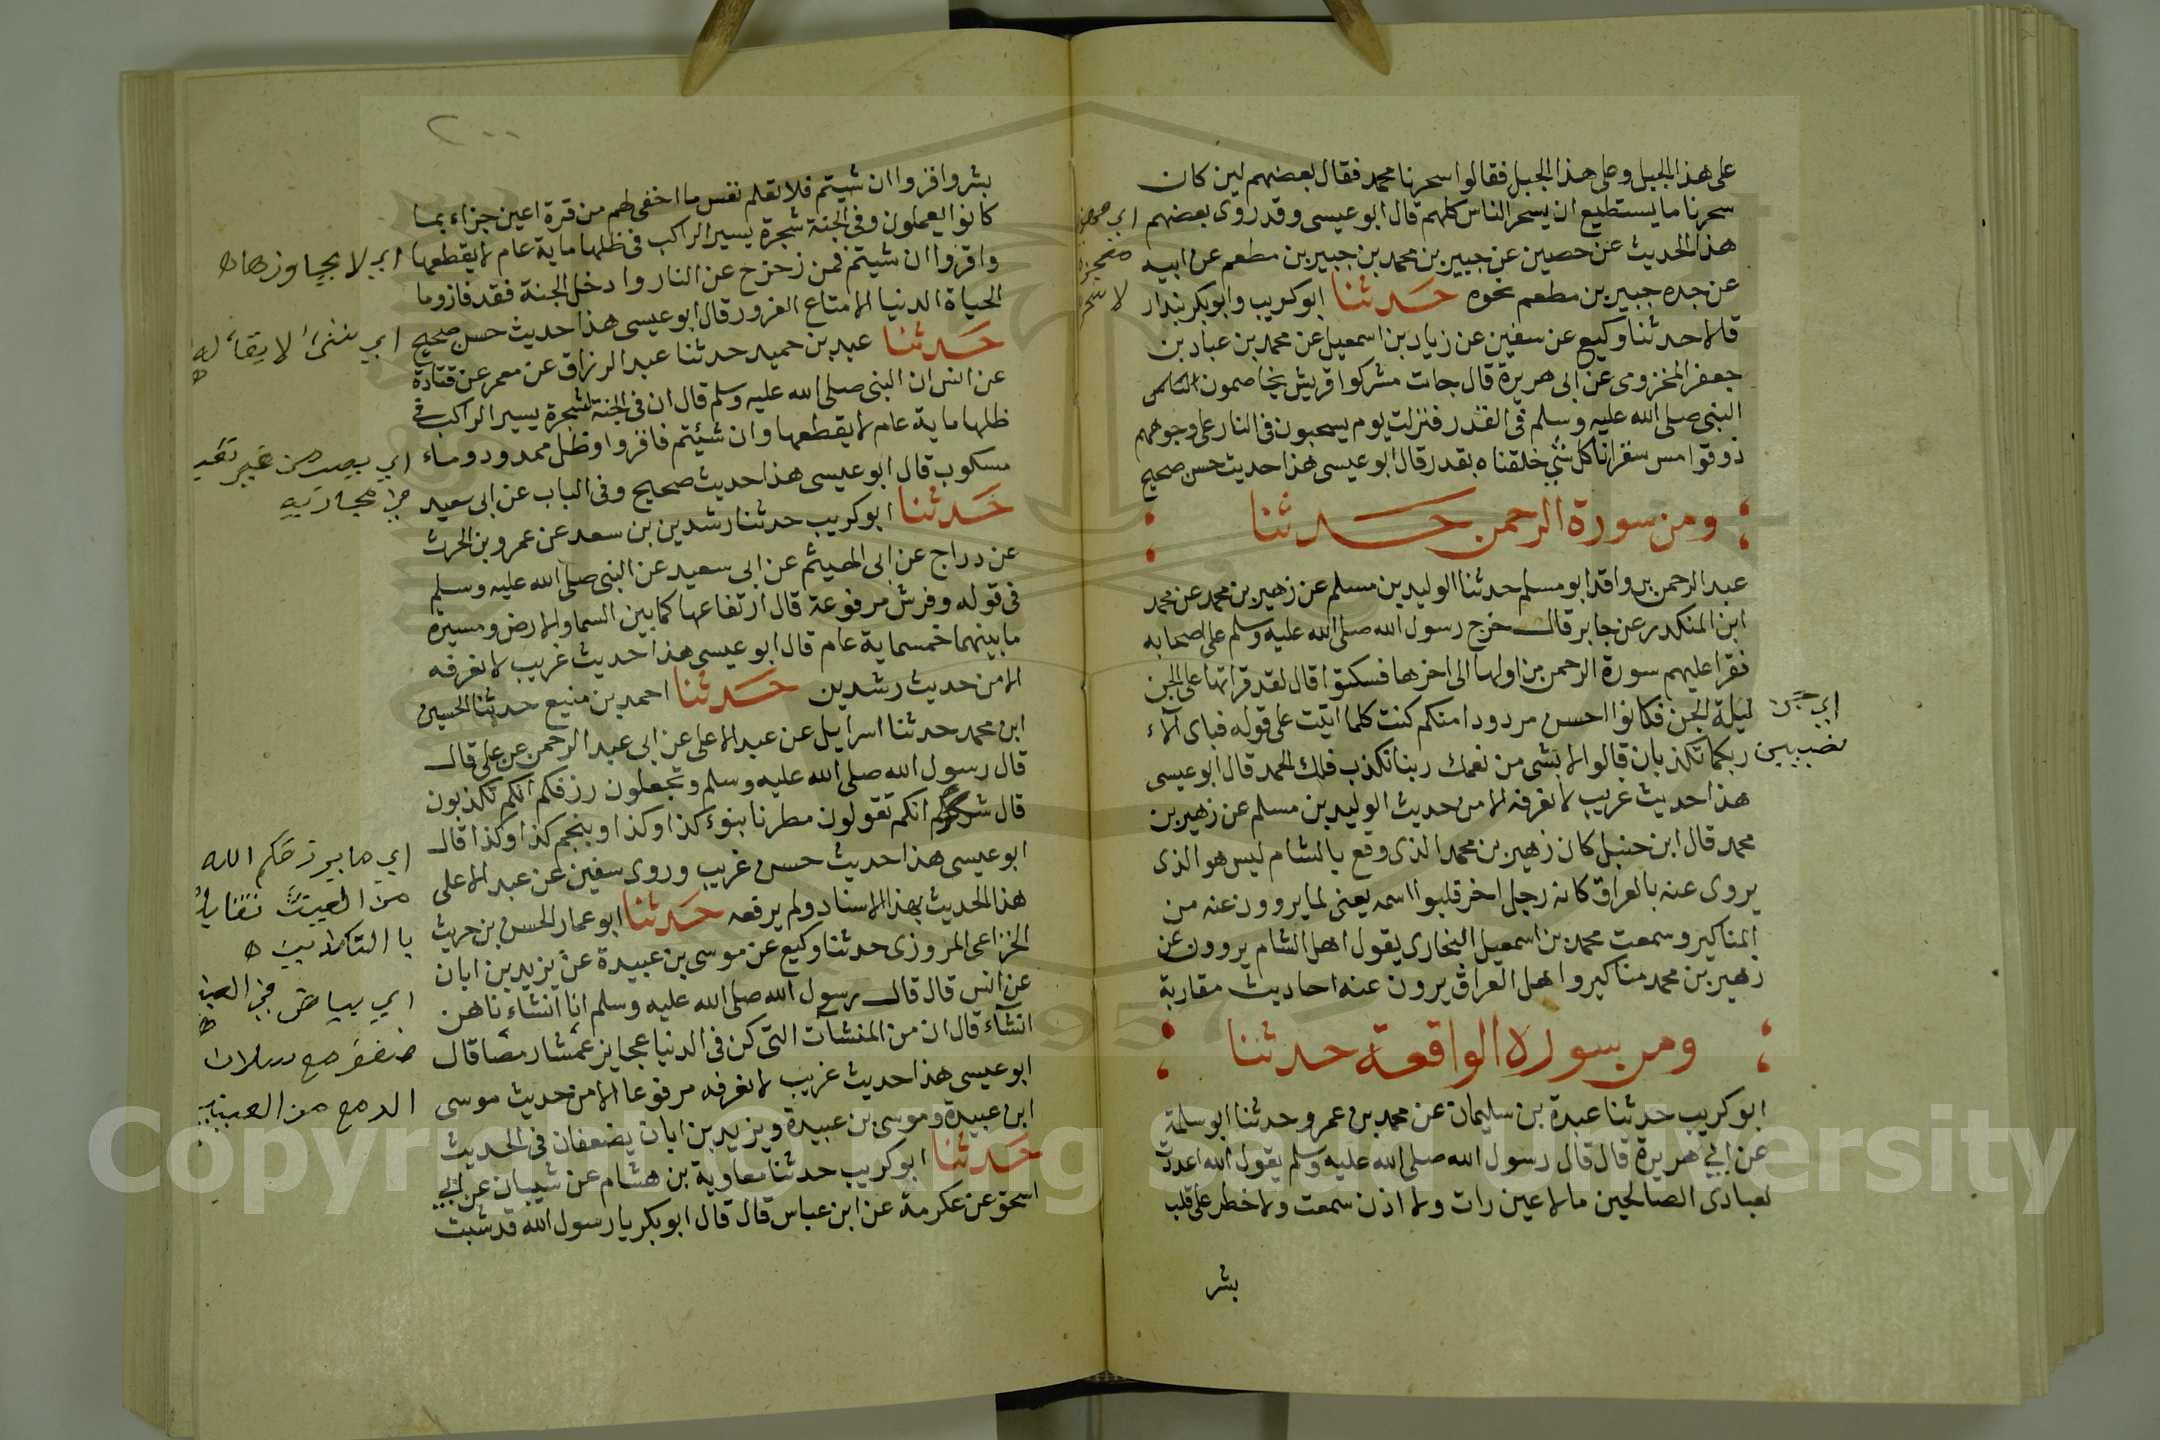 على هذا الجبل وعلى هذا الجبل فقالوا سحرنا محمد فقال بعضهم لين كان
سحرنا ما يستطيع ان يسحر الناس كلهم قال ابو عيسى وقد روى بعضهم
هذا الحديث عن حصين عن جبير بن محمد بن جبير بن مطعم عن ابيه
عن جده جبير بن مطعم نحوه حدثنا ابو كريب وابو بكر بندار
قالا حدثنا وكيع عن سفين عن زياد بن اسمعيل عن محمد بن عباد بن
جعفر المخزومى عن ابى هريرة قال جات مشركوا قريش يخاصمون
النبى صلى الله عليه وسلم فى القدر فنزلت يوم يسحبون فى النار على وجوههم
ذوقوا مس سقر انا كل شئ خلقناه بقدر قال ابو عيسى هذا حديث حسن صحيح
ومن سورة الرحمن حدثنا
عبد الرحمن بن واقد ابو مسلم حدثنا الوليد بن مسلم عن زهير بن محمد عن محمد
ابن المنكدر عن جابر قال خرج رسول الله صلى الله عليه وسلم على اصحابه
فقرا عليهم سورة الرحمن من اولها الى اخرها فسكتوا قال لقد قراتها على الجن
ليلة الجن فكانوا احسن مردودا منكم كنت كلما اتيت على قوله فباى آلاء
ربكما تكذبان قالوا لا بشى من نعمك ربنا نكذب فلك الحمد قال ابو عيسى
هذا حديث غريب لا نعرفه الا من حديث الوليد بن مسلم عن زهير بن
محمد قال ابن حنبل كان زهير بن محمد الذى وقع بالشام ليس هو الذى
يروى عنه بالعراق كانه رجل اخر قلبوا اسمه يعنى لما يروون عنه من
المناكير وسمعت محمد بن اسمعيل البخارى يقول اهل الشام يروون عن
زهير بن محمد مناكير واهل العراق يرون عنه احاديث مقاربة
ومن سورة الواقعة حدثنا
ابو كريب حدثنا عبدة بن سليمان عن محمد بن عمرو حدثنا ابو سلمة
عن ابي هريرة قال قال رسول الله صلى الله عليه وسلم يقول الله اعددت
لعبادى الصالحين مالا عين رات ولا اذن سمعت ولا خطر على قلب
بشر
اي جن
نصيبين
٢٠٠
بشر واقروا ان شيتم فلا تعلم نفس ما اخفى لهم من قرة اعين جزاء بما
كانوا يعملون وفى الجنة شجرة يسير الراكب فى ظلها ماية عام لا يقطعها
واقروا ان شيتم فمن زحزح عن النار وادخل الجنة فقد فاز وما
الحياة الدنيا الا متاع الغرور قال ابو عيسى هذا حديث حسن صحيح
حدثنا عبد بن حميد حدثنا عبد الرزاق عن معمر عن قتادة
عن انس ان النبى صلى الله عليه وسلم قال ان فى الجنة لشجرة يسير الراكب فى
ظلها ماية عام لا يقطعها وان شئتم فاقروا وظل ممدود وماء
مسكوب قال ابو عيسى هذا حديث صحيح وفى الباب عن ابى سعيد
حدثنا ابو كريب حدثنا رشدين بن سعد عن عمرو بن الحرث
عن دراج عن ابى الهيثم عن ابى سعيد عن النبى صلى الله عليه وسلم
فى قوله وفرش مرفوعة قال ارتفاعها كما بين السما والارض ومسيرة
ما بينهما خمسماية عام قال ابو عيسى هذا حديث غريب لا نعرفه
الا من حديث رشدين حدثنا احمد بن منيع حدثنا الحسين
ابن محمد حدثنا اسرايل عن عبد الاعلى عن ابى عبد الرحمن عن على قال
قال رسول الله صلى الله عليه وسلم وتجعلون رزقكم انكم تكذبون
قال شكركم انكم تقولون مطرنا بنوء كذا وكذا وبنجم كذا وكذا قال
ابو عيسى هذا حديث حسن غريب وروى سفين عن عبد الاعلى
هذا الحديث بهذا الاسناد ولم يرفعه حدثنا ابو عمار الحسن بن حريث
الخزاعى المروزى حدثنا وكيع عن موسى بن عبيدة عن يزيد بن ابان
عن انس قال قال رسول الله صلى الله عليه وسلم انا انشاءناهن
انشآء قال ان من المنشآت التى كن فى الدنيا عجايز عمشا رمصا قال
ابو عيسى هذا حديث غريب لا نعرفه مرفوعا الا من حديث موسى
ابن عبيدة وموسى بن عبيدة ويزيد بن ابان يضعفان فى الحديث
حدثنا ابو كريب حدثنا معاوية بن هشام عن شيبان عن ابي
اسحق عن عكرمة عن ابن عباس قال قال ابو بكر يا رسول الله قد شبت
اي لا يجاوزها
اي شئ لا بقاء له
اي يصب من غير
اي ما يرزقكم الله
من الغيث
اي بياض في العين
مع سيلان
الدمع من العينين
Copyright © King Saud University
1957